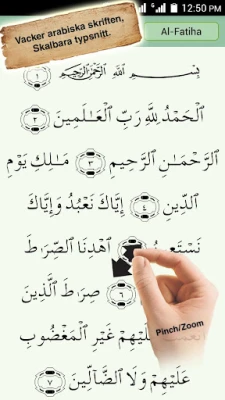 12:50 PM
Vacker arabiska skriften,
Skalbara typsnitt.
Al-Fatiha
بِسْمِ ٱللَّهِ ٱلرَّحْمَـٰنِ ٱلرَّحِيمِ ١
ٱلْحَمْدُ لِلَّهِ رَبِّ ٱلْعَـٰلَمِينَ ٢
ٱلرَّحْمَـٰنِ ٱلرَّحِيمِ ٣ مَـٰلِكِ يَوْمِ
ٱلدِّينِ ٤ إِيَّاكَ نَعْبُدُ وَإِيَّاكَ
ٱهْدِنَا ٱلصِّرَٰطَ
٦ صِرَٰطَ ٱلَّذِينَ
Pinch/Zoom
عَلَيْهِمْ غَيْرِ ٱلْمَغْضُوبِ
عَلَيْهِمْ وَلَا ٱلضَّآلِّينَ ٧